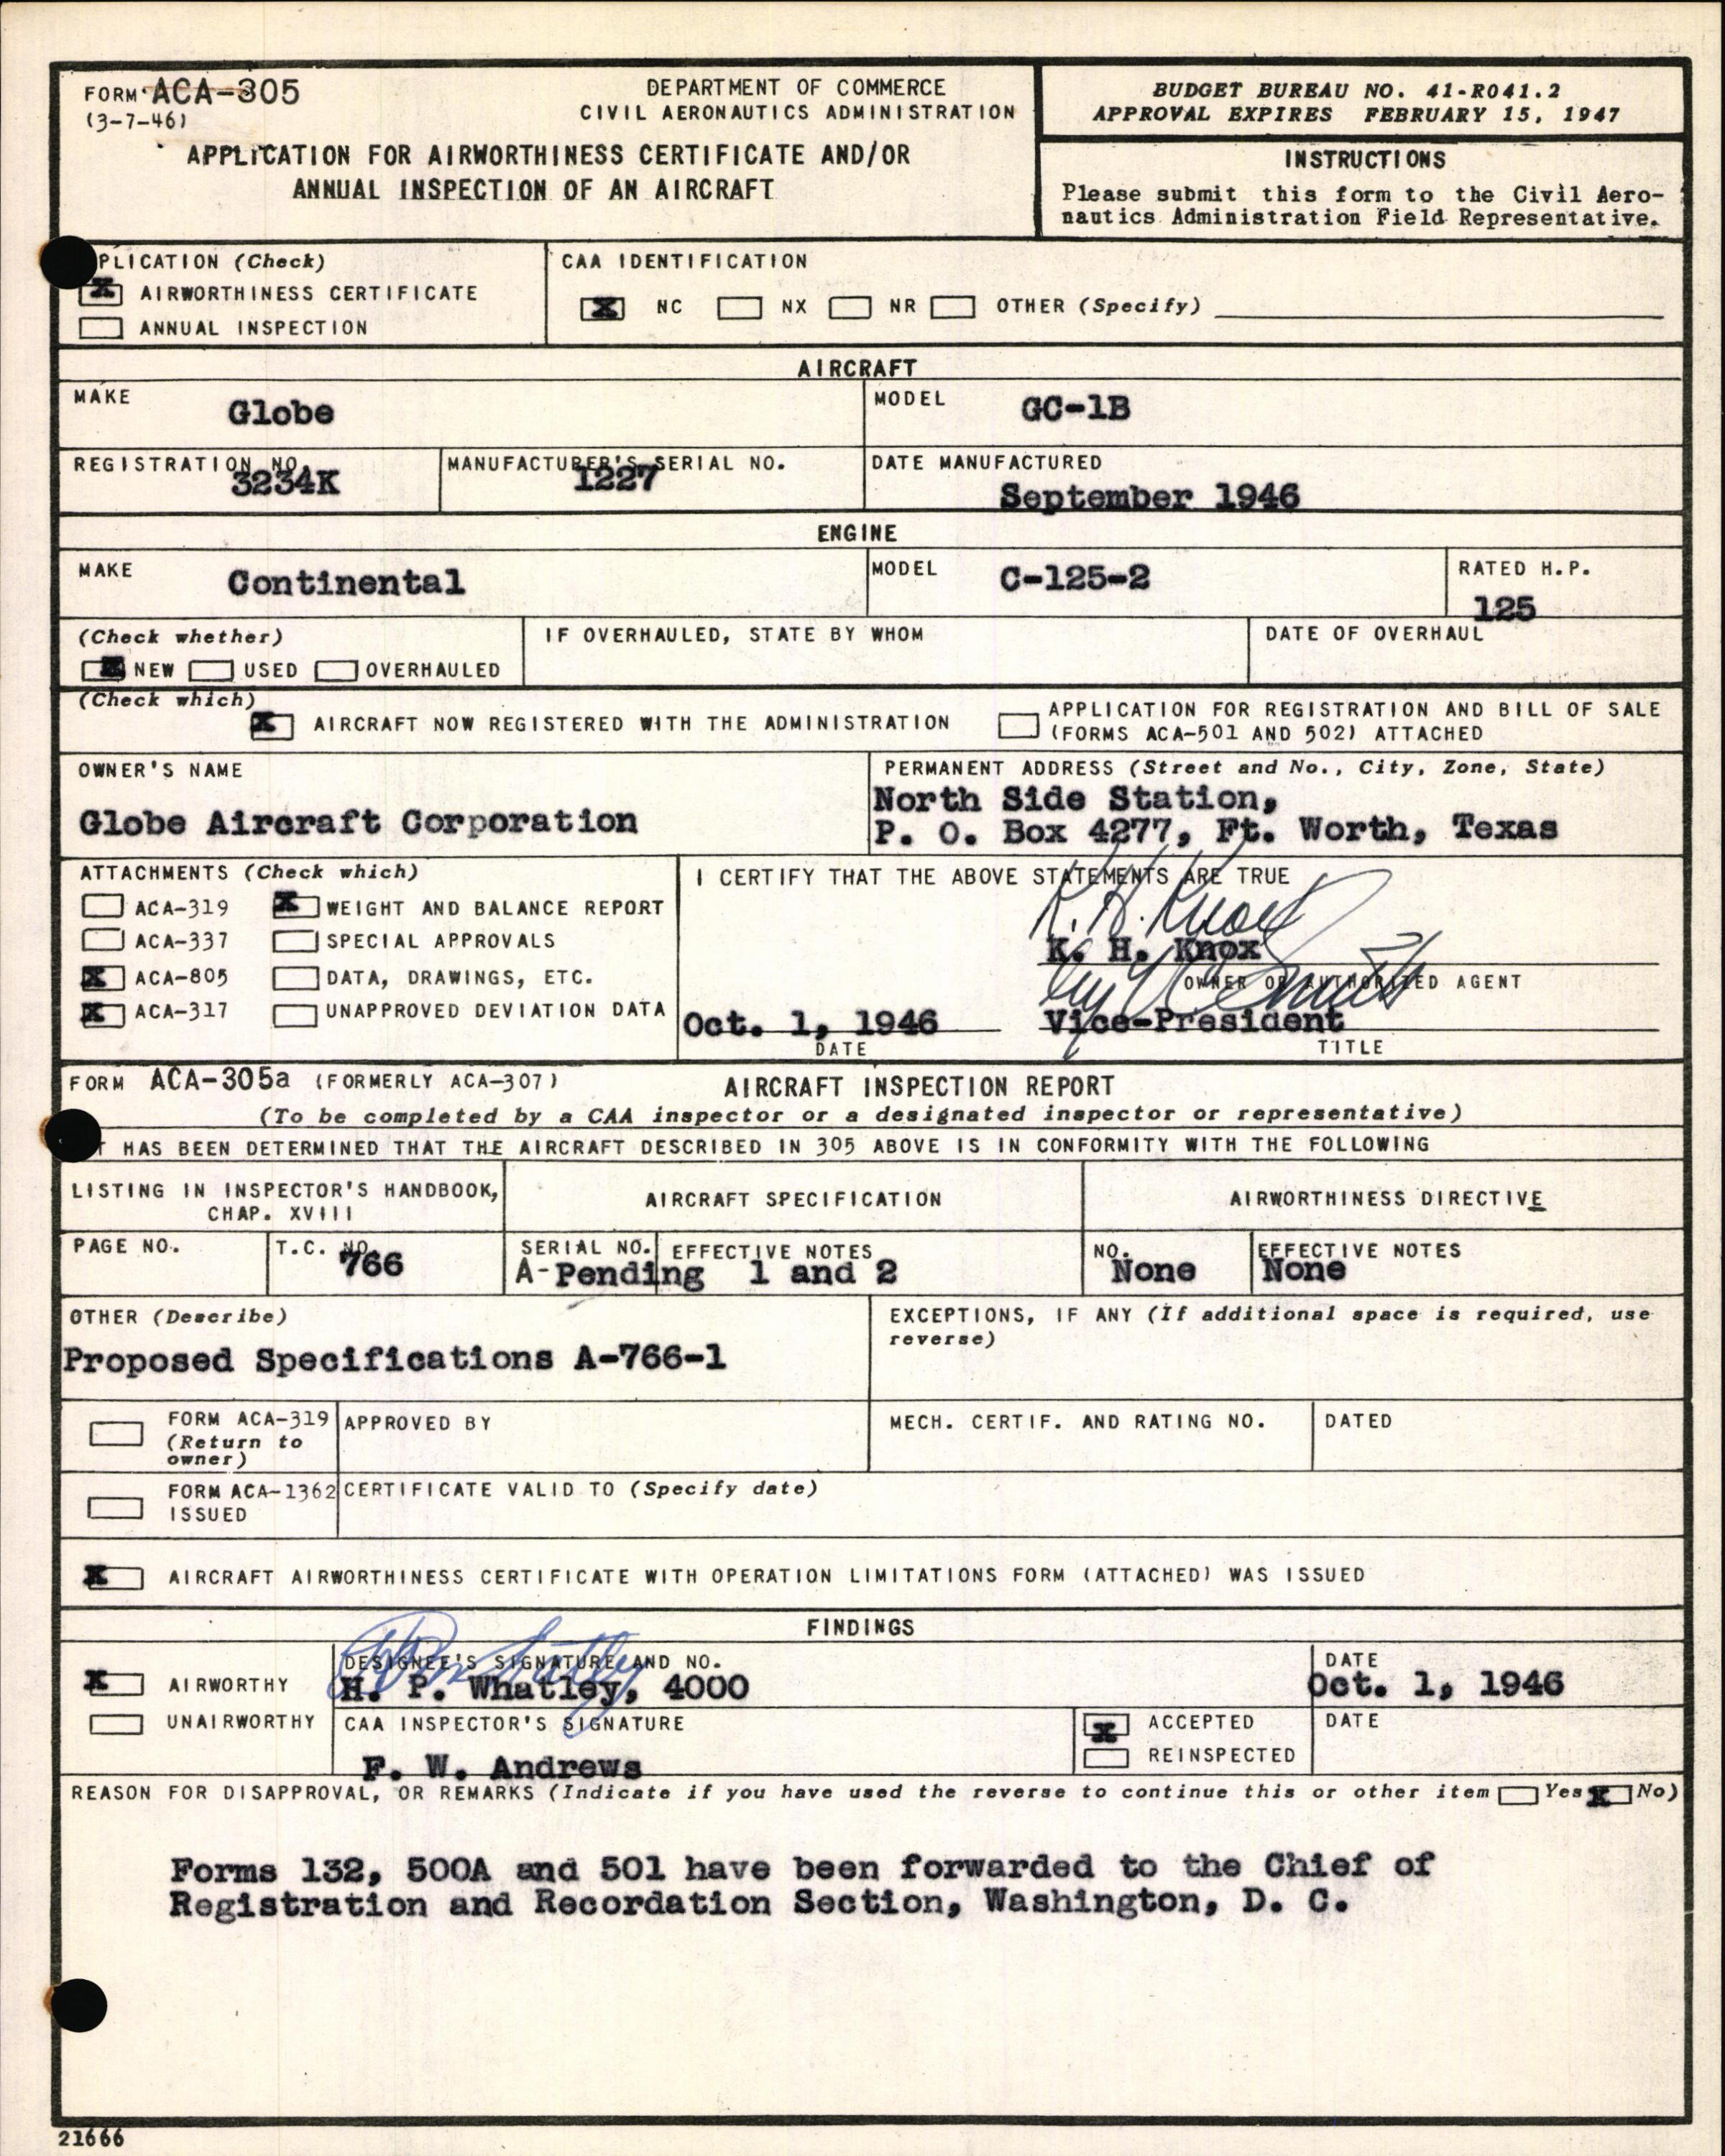 FORM ACA-305
(3-7-46)
DEPARTMENT OF COMMERCE
CIVIL AERONAUTICS ADMINISTRATION
APPLICATION FOR AIRWORTHINESS CERTIFICATE AND/OR
ANNUAL INSPECTION OF AN AIRCRAFT
BUDGET BUREAU NO. 41-R041.2
APPROVAL EXPIRES FEBRUARY 15, 1947
INSTRUCTIONS
Please submit this form to the Civil Aero-
nautics Administration Field Representative.
PLICATION (Check)
X AIRWORTHINESS CERTIFICATE
ANNUAL INSPECTION
CAA IDENTIFICATION
X NC NX NR OTHER (Specify)
AIRCRAFT
MAKE
Globe
MODEL
GC-1B
REGISTRATION NO.
3234K
MANUFACTURER'S SERIAL NO.
1227
DATE MANUFACTURED
September 1946
ENGINE
MAKE
Continental
MODEL
C-125-2
RATED H.P.
125
(Check whether)
X NEW USED OVERHAULED
IF OVERHAULED, STATE BY WHOM
DATE OF OVERHAUL
(Check which)
X AIRCRAFT NOW REGISTERED WITH THE ADMINISTRATION
APPLICATION FOR REGISTRATION AND BILL OF SALE
(FORMS ACA-501 AND 502) ATTACHED
OWNER'S NAME
Globe Aircraft Corporation
PERMANENT ADDRESS (Street and No., City, Zone, State)
North Side Station,
P. O. Box 4277, Ft. Worth, Texas
ATTACHMENTS (Check which)
ACA-319 X WEIGHT AND BALANCE REPORT
ACA-337 SPECIAL APPROVALS
X ACA-805 DATA, DRAWINGS, ETC.
X ACA-317 UNAPPROVED DEVIATION DATA
I CERTIFY THAT THE ABOVE STATEMENTS ARE TRUE
K. H. Knox
K. H. Knox
OWNER OR AUTHORIZED AGENT
by Smith
Oct. 1, 1946 Vice-President
DATE TITLE
FORM ACA-305a (FORMERLY ACA-307) AIRCRAFT INSPECTION REPORT
(To be completed by a CAA inspector or a designated inspector or representative)
T HAS BEEN DETERMINED THAT THE AIRCRAFT DESCRIBED IN 305 ABOVE IS IN CONFORMITY WITH THE FOLLOWING
LISTING IN INSPECTOR'S HANDBOOK,
CHAP. XVIII
AIRCRAFT SPECIFICATION
AIRWORTHINESS DIRECTIVE
PAGE NO.
T.C. NO.
766
SERIAL NO.
A-Pending
EFFECTIVE NOTES
1 and 2
NO.
None
EFFECTIVE NOTES
None
OTHER (Describe)
Proposed Specifications A-766-1
EXCEPTIONS, IF ANY (If additional space is required, use
reverse)
FORM ACA-319
(Return to
owner)
APPROVED BY
MECH. CERTIF. AND RATING NO.
DATED
FORM ACA-1362
ISSUED
CERTIFICATE VALID TO (Specify date)
X AIRCRAFT AIRWORTHINESS CERTIFICATE WITH OPERATION LIMITATIONS FORM (ATTACHED) WAS ISSUED
FINDINGS
X AIRWORTHY
UNAIRWORTHY
DESIGNEE'S SIGNATURE AND NO.
H. P. Whatley, 4000
DATE
Oct. 1, 1946
CAA INSPECTOR'S SIGNATURE
F. W. Andrews
X ACCEPTED
REINSPECTED
DATE
REASON FOR DISAPPROVAL, OR REMARKS (Indicate if you have used the reverse to continue this or other item Yes X No)
Forms 132, 500A and 501 have been forwarded to the Chief of
Registration and Recordation Section, Washington, D. C.
21666